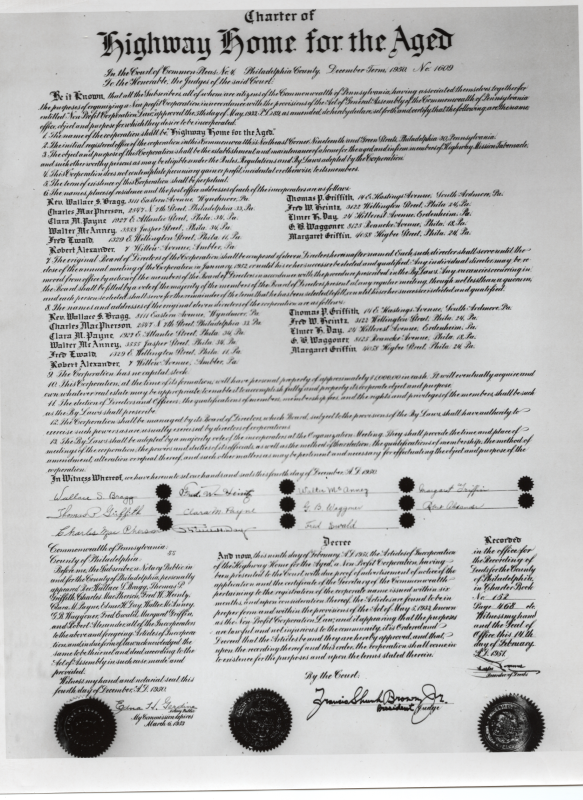 Charter of
Highway Home for the Aged
In the Court of Common Pleas No. 6, Philadelphia County, December Term, 1950, No. 1609
To the Honorable, the Judges of the said Court:
Be it Known, that all the Subscribers, all of whom are citizens of the Commonwealth of Pennsylvania, having associated themselves together for
the purpose of organizing a Non profit Corporation in accordance with the provisions of the Act of General Assembly of the Commonwealth of Pennsylvania
entitled Non Profit Corporation Law, approved the 5th day of May, 1933, P.L. 289, as amended, do hereby state, set forth and certify that the following are the name,
office, object and purpose for which they desire to be incorporated.
1. The name of the corporation shall be "Highway Home for the Aged."
2. The initial registered office of the corporation in this Commonwealth is Northeast Corner, Nineteenth and Streets, Philadelphia 30, Pennsylvania.
3. The object and purpose of the Corporation shall be the establishment and maintenance of a home for the aged and infirm members of Highway Mission Tabernacle,
and such other worthy persons as may be eligible under the Rules, Regulations and By Laws adopted by the Corporation.
4. The Corporation does not contemplate pecuniary gain or profit, incidental or otherwise, to its members.
5. The term of existence of the Corporation shall be perpetual.
6. The names, places of residence and the post office addresses of each of the incorporators are as follows:
Rev. Wallace S. Bragg, 8111 Eastern Avenue, Wyndmoor, Pa.
Charles MacPherson, 2547 N. 7th Street, Philadelphia 33, Pa.
Clara M. Payne, 1927 E. Atlantic Street, Phila. 34, Pa.
Walter McAnney, 3555 Jasper Street, Phila. 34, Pa.
Fred Ewald, 1329 E. Wellington Street, Phila. 11, Pa.
Robert Alexander, 7 Willow Avenue, Ambler, Pa.
Thomas P. Griffith, 14 E. Hastings Avenue, South Ardmore, Pa.
Fred W. Heintz, 3122 Wellington Street, Phila. 24, Pa.
Elmer K. Day, 24 Hillcrest Avenue, Erdenheim, Pa.
G. B. Waggoner, 3123 Avenue, Phila. 15, Pa.
Margaret Griffin, 4038 Higbee Street, Phila. 24, Pa.
7. The original Board of Directors of the Corporation shall be composed of eleven Directors hereinafter named. Each such director shall serve until the
close of the annual meeting of the Corporation in January, 1952, or until his or her successor be elected and qualified. Any individual director may be re-
moved from office by action of the members of the Board of Directors in accordance with the procedure presented in the By Laws. Any vacancies occurring in
the Board shall be filled by a vote of the majority of the members of the Board of Directors present at any regular meeting, though not less than a quorum,
and each person so elected, shall serve for the remainder of the term that he has been selected to fill, or until his or her successor is elected and qualified.
8. The names and addresses of the original eleven directors of the corporation are as follows:
Rev. Wallace S. Bragg, 8111 Eastern Avenue, Wyndmoor, Pa.
Charles MacPherson, 2547 N. 7th Street, Philadelphia 33, Pa.
Clara M. Payne, 1927 E. Atlantic Street, Phila. 34, Pa.
Walter McAnney, 3555 Jasper Street, Phila. 34, Pa.
Fred Ewald, 1329 E. Wellington Street, Phila. 11, Pa.
Robert Alexander, 7 Willow Avenue, Ambler, Pa.
Thomas P. Griffith, 14 E. Hastings Avenue, South Ardmore, Pa.
Fred W. Heintz, 3122 Wellington Street, Phila. 24, Pa.
Elmer K. Day, 24 Hillcrest Avenue, Erdenheim, Pa.
G. B. Waggoner, 3123 Avenue, Phila. 15, Pa.
Margaret Griffin, 4038 Higbee Street, Phila. 24, Pa.
9. The Corporation has no capital stock.
10. This Corporation, at the time of its formation, will have personal property of approximately in cash. It will eventually acquire and
own whatever real estate may be appropriate to enable it to accomplish fully and properly its corporate object and purpose.
11. The election of Directors and Officers, the qualifications of members, membership fees, and the rights and privileges of the members shall be such
as the By Laws shall prescribe.
12. The Corporation shall be managed by its Board of Directors, which Board, subject to the provisions of the By Laws, shall have authority to
exercise such powers as are usually exercised by directors of corporations.
13. The By Laws shall be adopted by a majority vote of the incorporators at the Organization Meeting. They shall provide the time and place of
meetings of the corporation, the powers and duties of its officials, as well as the method of their election, the qualifications of membership, the method of
amendment, alteration or repeal thereof, and such other matters as may be pertinent and necessary for effectuating the object and purpose of the
corporation.
In Witness Whereof, we have hereunto set our hands and seals this fourth day of December, A.D. 1950.
Wallace S. Bragg Fred W. Heintz Walter McAnney Margaret Griffin
Thomas P. Griffith Clara M. Payne G. B. Waggoner Robt. Alexander
Charles MacPherson Day Fred Ewald
Commonwealth of Pennsylvania
County of Philadelphia. SS
Before me, the Subscriber, a Notary Public in
and for the County of Philadelphia, personally
appeared Rev. Wallace S. Bragg, Thomas P.
Griffith, Charles MacPherson, Fred W. Heintz,
Clara M. Payne, Elmer K. Day, Walter McAnney,
G. B. Waggoner, Fred Ewald, Margaret Griffin,
and Robert Alexander, all of the Incorporators
to the above and foregoing Articles of Incorpora-
tion, and in due form of law acknowledged the
same to be their act and deed according to the
Act of Assembly in such case made and
provided.
Witness my hand and notarial seal this
fourth day of December, A.D. 1950.
Edna H.
Notary Public
My Commission Expires
March 6, 1951
Decree
And now, this ninth day of February, A.D. 1951, the Articles of Incorporation
of the Highway Home for the Aged, a Non Profit Corporation, having
been presented to the Court with due proof of advertisement of notice of the
application and the certificate of the Secretary of the Commonwealth
pertaining to the registration of the corporate name issued within six
months, and upon consideration thereof, the Articles are found to be in
proper form and within the provisions of the Act of May 5, 1933, known
as the Non Profit Corporation Law, and it appearing that the purposes
are lawful and not injurious to the community, it is Ordered and
Decreed that the Articles be and they are hereby approved, and that,
upon the recording thereof and this order, the corporation shall come in-
to existence for the purposes and upon the terms stated therein.
By the Court:
Francis Shunk Brown, Jr.
President Judge
Recorded
in the office for
the Recording of
Deeds for the County
of Philadelphia,
in Charter Book
No. 152
Page 468 etc.
Witness my hand
and the Seal of
Office, this 14th
day of February,
A.D. 1951
Recorder of Deeds